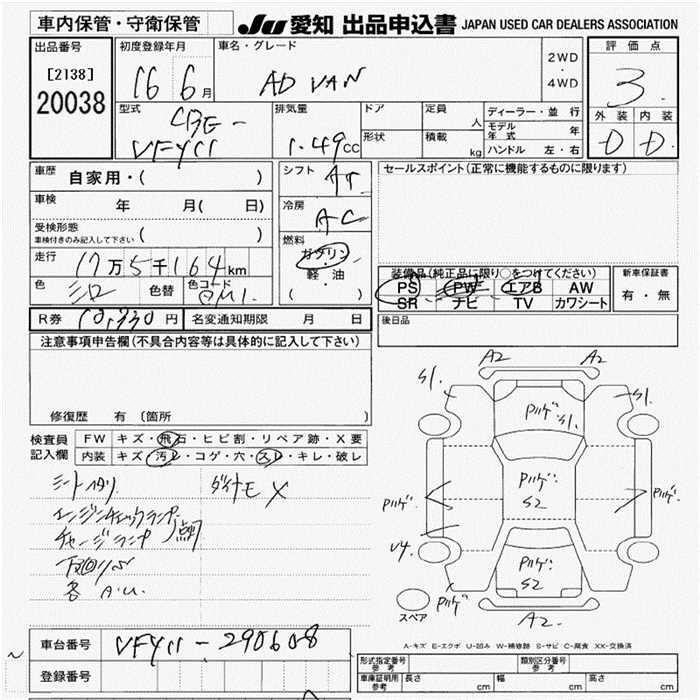 車内保管・守衛保管
JU 愛知 出品申込書 JAPAN USED CAR DEALERS ASSOCIATION
出品番号
[2138]
20038
初度登録年月
16 6月
車名・グレード
AD VAN
2WD
・
4WD
評価点
3
外装 内装
D D
型式
CBE-
VFY11
排気量
1.49cc
ドア
形状
定員
人
積載
kg
ディーラー・並 行
モデル年式 年
ハンドル 左・右
車歴
自家用・( )
車検
年 月( 日)
受検形態
車検付きのみ記入して下さい ( )
走行
17万5千164km
色
シロ
色替
色コード
QM1
シフト
AT
冷房
AC
燃料
ガソリン
・
軽・油
( )
セールスポイント(正常に機能するものに限ります)
装備品(純正品に限り○をつけてください)
PS PW エアB AW
SR ナビ TV カワシート
新車保証書
有・無
後日品
R券 10,330円
名変通知期限 月 日
注意事項申告欄(不具合内容等は具体的に記入して下さい)
修復歴 有 〔箇所 〕
検査員
記入欄
FW キズ・飛石・ヒビ割・リペア跡・X要
内装 キズ・汚レ・コゲ・穴・スレ・キレ・破レ
シートヘタリ
ダイナモ X
エンジンチェックランプ
チャージランプ 点灯
下回りS
各 A.U.
A2 A2
S1. S1.
Pハゲ S1.
Pハゲ
S2
Pハゲ Pハゲ
U4.
Pハゲ
S2
X
Pハゲ
A2.
スペア
A-キズ E-エクボ U-凹み W-補修跡 S-サビ C-腐食 XX-交換済
車台番号
VFY11-290608
登録番号
形式指定番号
参考
類別区分番号
参考
車庫証明用
参考
長さ cm
幅 cm
高さ cm